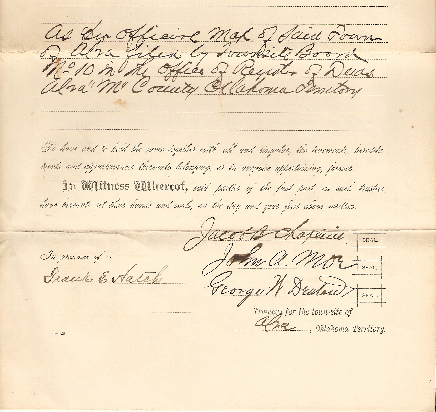 As per Official Map of Said Town
of Alva filed by Townsite Board
No 10 in the Office of Register of Deeds
Alva M County Oklahoma Territory
To have and to hold the same together with all and singular, the tenements, heredita-
ments and appurtenances thereunto belonging, or in anywise appertaining, forever.
In Witness Whereof, said parties of the first part as said trustees
have hereunto set their hands and seals, on the day and year first above written.
Jacob B
SEAL
In presence of
John A.
SEAL
Frank E Hatch
George W
SEAL
for the townsite of
Alva, Oklahoma Territory.